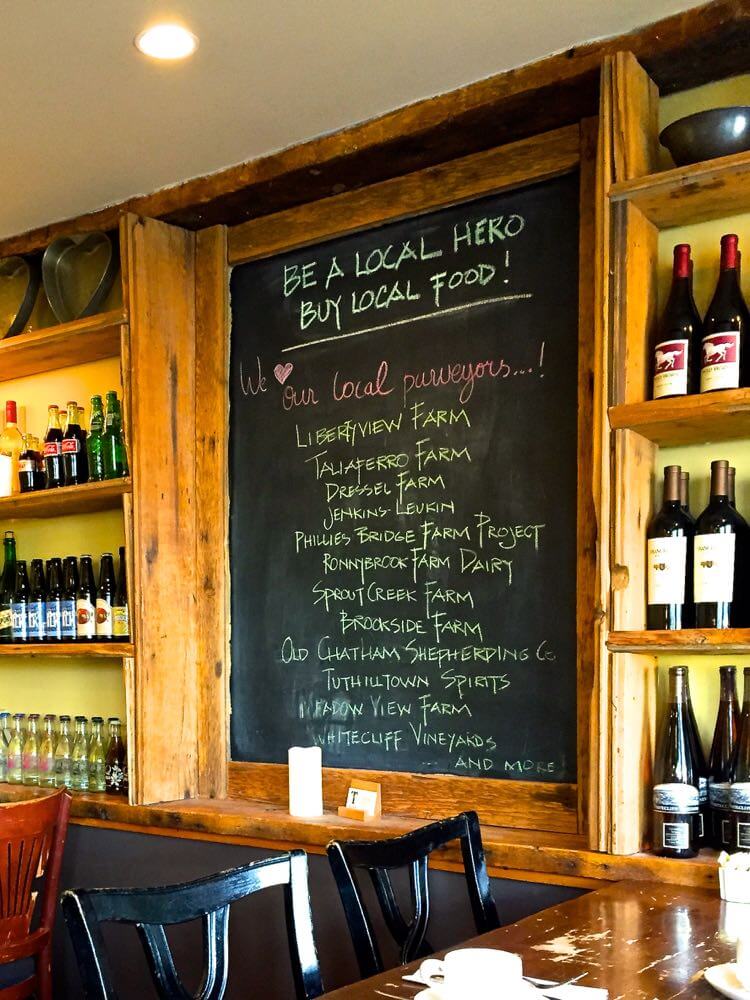 BE A LOCAL HERO
BUY LOCAL FOOD!
We ♥ our local purveyors...!
LIBERTYVIEW FARM
TALIAFERRO FARM
DRESSEL FARM
JENKINS-LEUKIN
PHILLIES BRIDGE FARM PROJECT
RONNYBROOK FARM DAIRY
SPROUT CREEK FARM
BROOKSIDE FARM
OLD CHATHAM SHEPHERDING CO
TUTHILLTOWN SPIRITS
VIEW FARM
WHITECLIFF VINEYARDS
... AND MORE
T